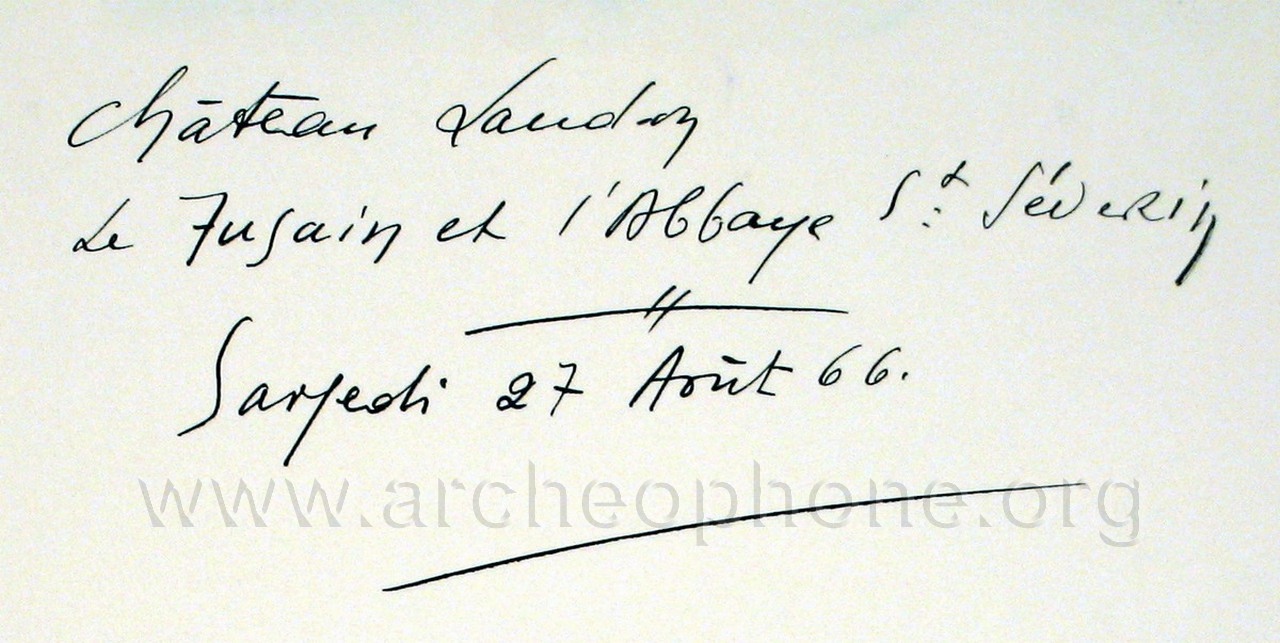 Château Landon
Le Fusain et l'Abbaye St Séverin
Samedi 27 Août 66.
www.archeophone.org